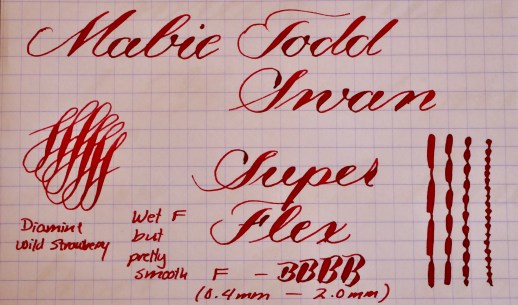 Mabie Todd
Swan
Super
Flex
Diamine
wild strawberry
Wet F
but
pretty
smooth
F - BBBB
(0.4mm - 2.0mm)